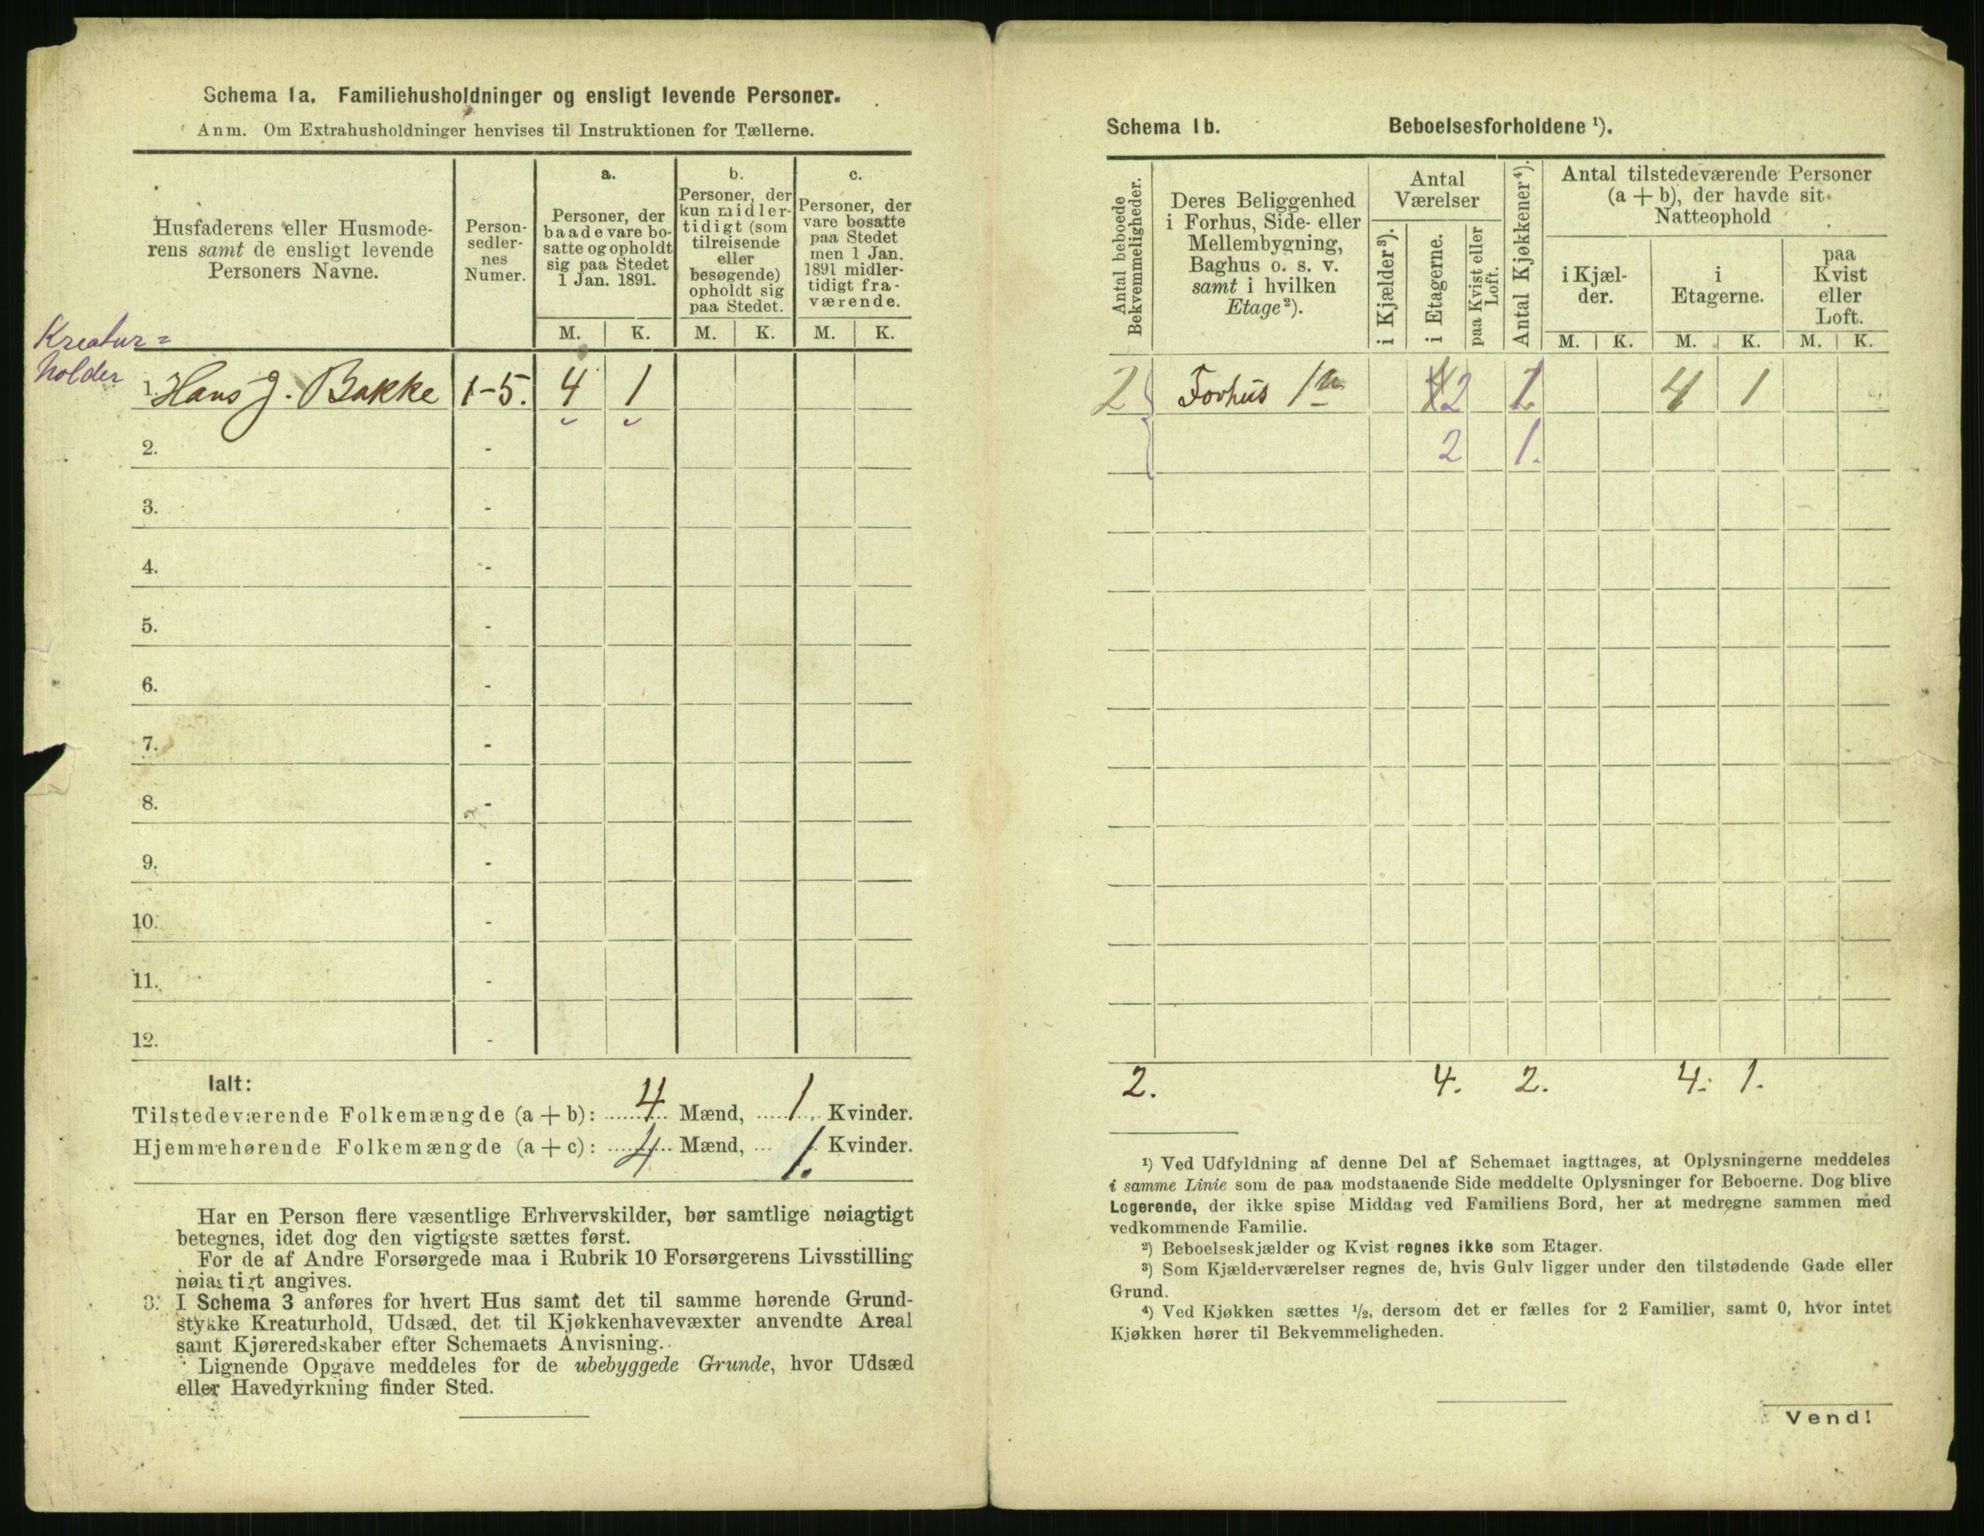 Schema 1a. Familiehusholdninger og ensligt levende Personer.
Anm. Om Extrahusholdninger henvises til Instruktionen for Tællerne.
Husfaderens eller Husmode-
rens samt de ensligt levende
Personers Navne.
Person-
sedler-
nes
Numer.
a.
Personer, der
baade vare bo-
satte og opholdt
sig paa Stedet
1 Jan. 1891.
b.
Personer, der
kun midler-
tidigt (som
tilreisende
eller
besøgende)
opholdt sig
paa Stedet.
c.
Personer, der
vare bosatte
paa Stedet
men 1 Jan.
1891 midler-
tidigt fra-
værende.
M. K. M. K. M. K.
Kreatur=
holder
1. Hans J. Bakke 1-5. 4 1
2. -
3. -
4. -
5. -
6. -
7. -
8. -
9. -
10. -
11. -
12. -
Ialt:
Tilstedeværende Folkemængde (a + b): 4 Mænd, 1 Kvinder.
Hjemmehørende Folkemængde (a + c): 4 Mænd, 1. Kvinder.
Har en Person flere væsentlige Erhvervskilder, bør samtlige nøiagtigt
betegnes, idet dog den vigtigste sættes først.
For de af Andre Forsørgede maa i Rubrik 10 Forsørgerens Livsstilling
nøiagtigt angives.
3. I Schema 3 anføres for hvert Hus samt det til samme hørende Grund-
stykke Kreaturhold, Udsæd, det til Kjøkkenhavevæxter anvendte Areal
samt Kjøreredskaber efter Schemaets Anvisning.
Lignende Opgave meddeles for de ubebyggede Grunde, hvor Udsæd
eller Havedyrkning finder Sted.
Schema 1b. Beboelsesforholdene ¹).
Antal beboede
Bekvemmeligheder.
Deres Beliggenhed
i Forhus, Side- eller
Mellembygning,
Baghus o. s. v.
samt i hvilken
Etage²).
Antal
Værelser
i Kjælder³).
i Etagerne.
paa Kvist eller
Loft.
Antal Kjøkkener⁴).
Antal tilstedeværende Personer
(a + b), der havde sit
Natteophold
i Kjæl-
der.
i
Etagerne.
paa
Kvist
eller
Loft.
M. K. M. K. M. K.
2 Forhus 1ste 2 1 4 1
2 1.
2. 4. 2. 4. 1.
¹) Ved Udfyldning af denne Del af Schemaet iagttages, at Oplysningerne meddeles
i samme Linie som de paa modstaaende Side meddelte Oplysninger for Beboerne. Dog blive
Logerende, der ikke spise Middag ved Familiens Bord, her at medregne sammen med
vedkommende Familie.
²) Beboelseskjælder og Kvist regnes ikke som Etager.
³) Som Kjælderværelser regnes de, hvis Gulv ligger under den tilstødende Gade eller
Grund.
⁴) Ved Kjøkken sættes ½, dersom det er fælles for 2 Familier, samt 0, hvor intet
Kjøkken hører til Bekvemmeligheden.
Vend!